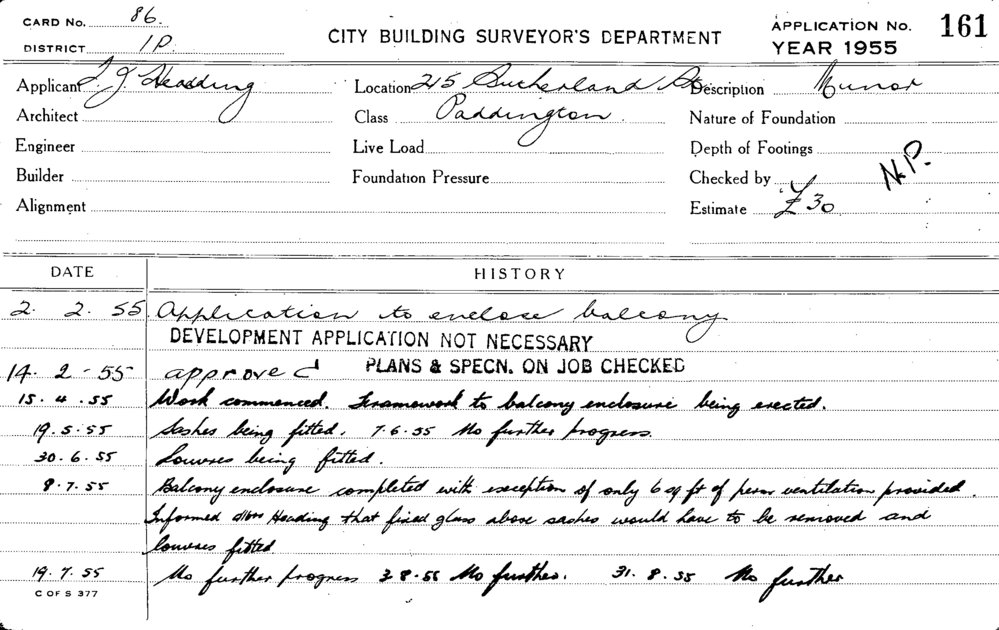 CARD No. 86.
DISTRICT 1P.
CITY BUILDING SURVEYOR'S DEPARTMENT
APPLICATION No. 161
YEAR 1955
Applicant J. J. Headding Location 215 Sutherland St Description Minor
Architect Class Paddington Nature of Foundation
Engineer Live Load Depth of Footings
Builder Foundation Pressure Checked by N.P.
Alignment Estimate £30
DATE HISTORY
2. 2. 55 Application to enclose balcony
DEVELOPMENT APPLICATION NOT NECESSARY
14. 2 - 55 approved PLANS & SPECN. ON JOB CHECKED
15. 4. 55 Work commenced. Framework to balcony enclosure being erected.
19. 5. 55 Sashes being fitted. 7.6.55 No further progress.
30. 6. 55 Louvres being fitted.
8. 7. 55 Balcony enclosure completed with exception of only 6 sq ft of perm ventilation provided.
Informed Mrs Headding that fixed glass above sashes would have to be removed and
louvres fitted
19. 7. 55 No further progress 3.8.55 No further. 31. 8. 55 No further
C OF S 377